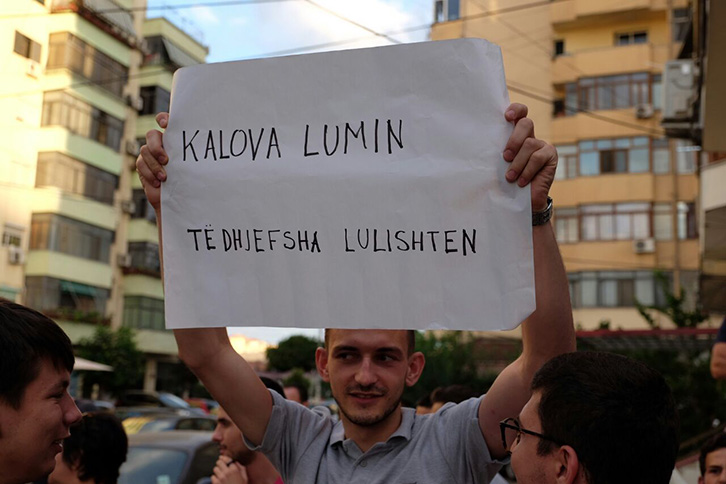 KALOVA LUMIN
TË DHJEFSHA LULISHTEN